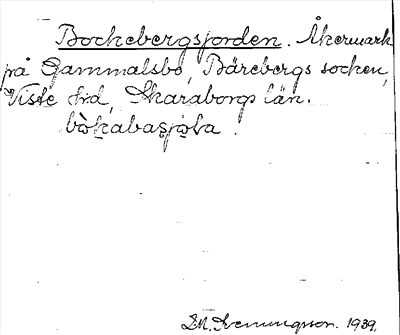 Bockebergsjorden. Åkermark
på Gammalsbo, Bärebergs socken,
Viste hd, Skaraborgs län.
bòkabasjòla.
D.M. Svenningsson. 1939.